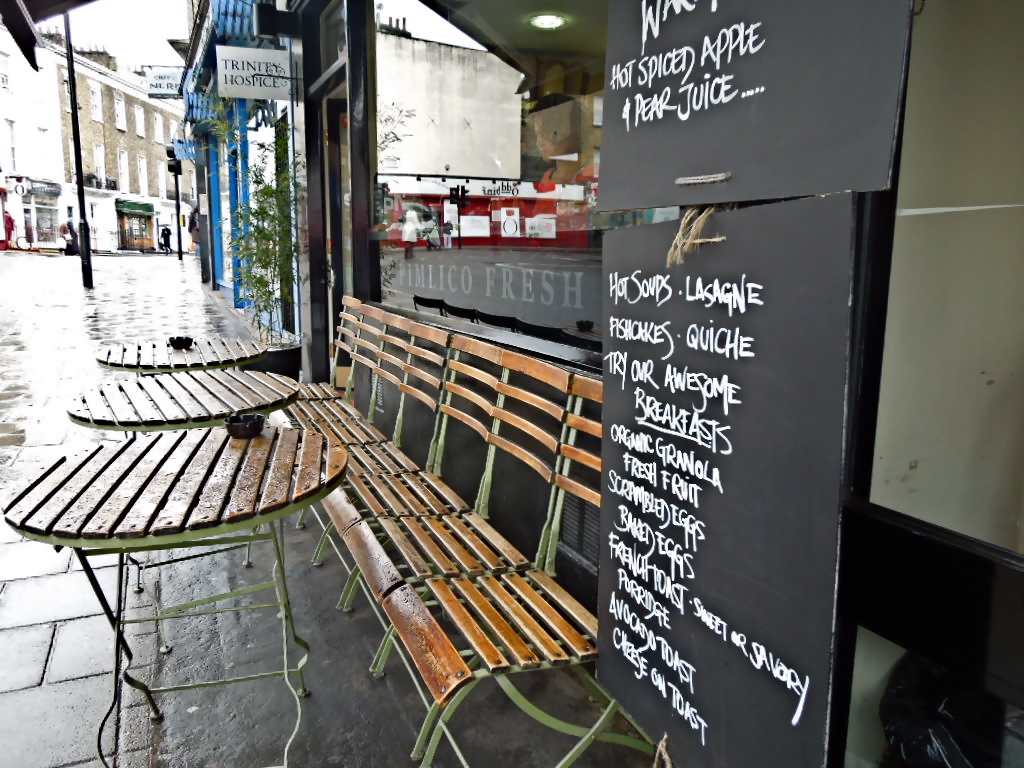 TRINITY
HOSPICE
HOT SPICED APPLE
& PEAR JUICE.....
PIMLICO FRESH
HOT SOUPS . LASAGNE
FISHCAKES . QUICHE
TRY OUR AWESOME
BREAKFASTS
ORGANIC GRANOLA
FRESH FRUIT
SCRAMBLED EGGS
BAKED EGGS
FRENCH TOAST . SWEET OR SAVORY
PORRIDGE
AVOCADO TOAST
CHEESE ON TOAST